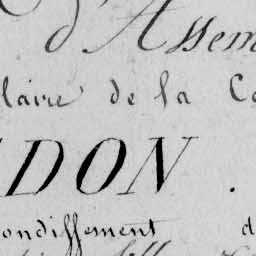 d'Assem
laire de la Co
DON.
ondissement d